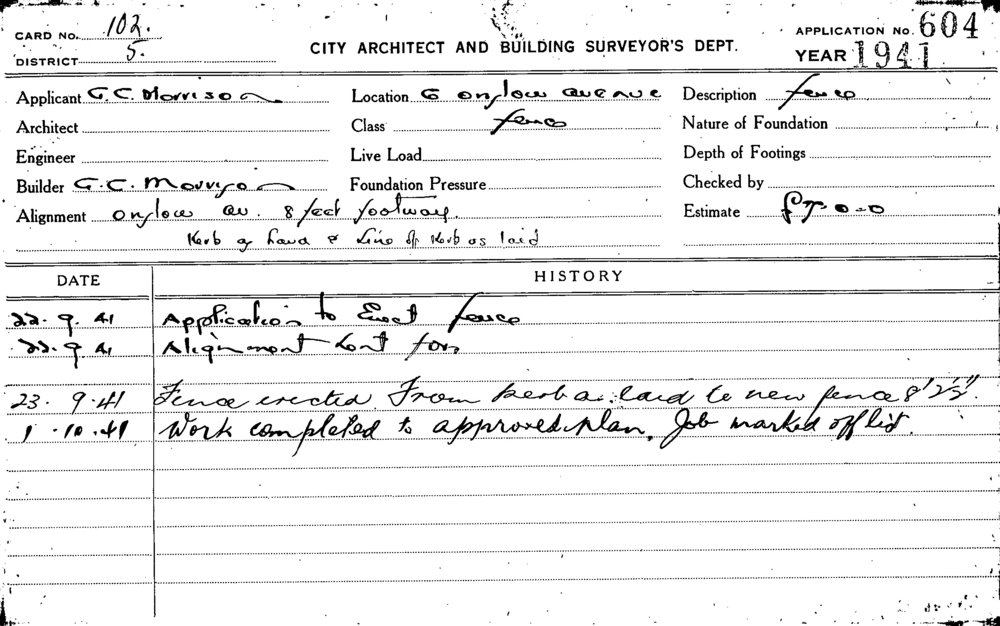 CARD No. 102.
DISTRICT 5.
CITY ARCHITECT AND BUILDING SURVEYOR'S DEPT.
APPLICATION No. 604
YEAR 1941
Applicant G. C. Morrison Location 6 onslow avenue Description fence
Architect Class fence Nature of Foundation
Engineer Live Load Depth of Footings
Builder G. C. Morrison Foundation Pressure Checked by
Alignment onslow av. 8 feet footway. Estimate £7-0-0
Kerb & Line of Kerb as laid
DATE HISTORY
22. 9. 41 Application to Erect fence
22. 9 41 Alignment for
23. 9. 41 Fence erected From kerb as laid to new fence 8' 2½".
1. 10. 41 Work completed to approved plan. Job marked off list.